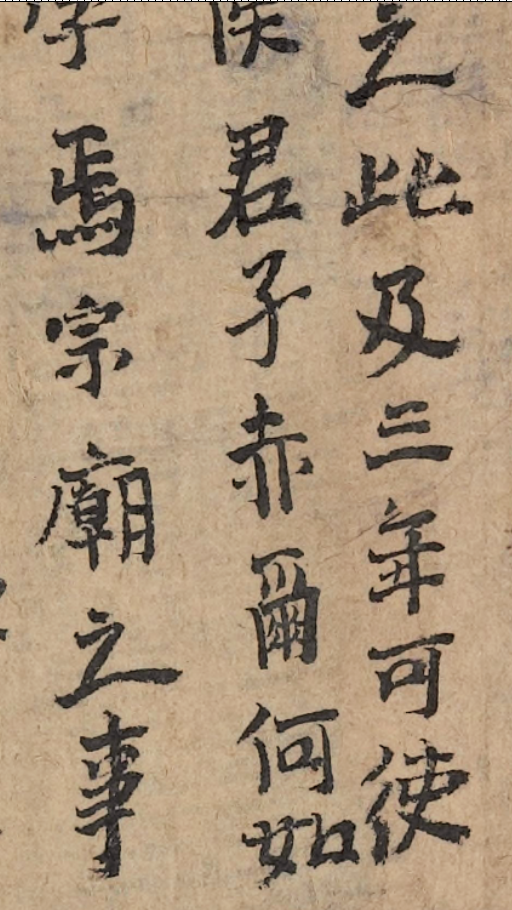 之此及三年可使
俟君子赤爾何如
學焉宗廟之事